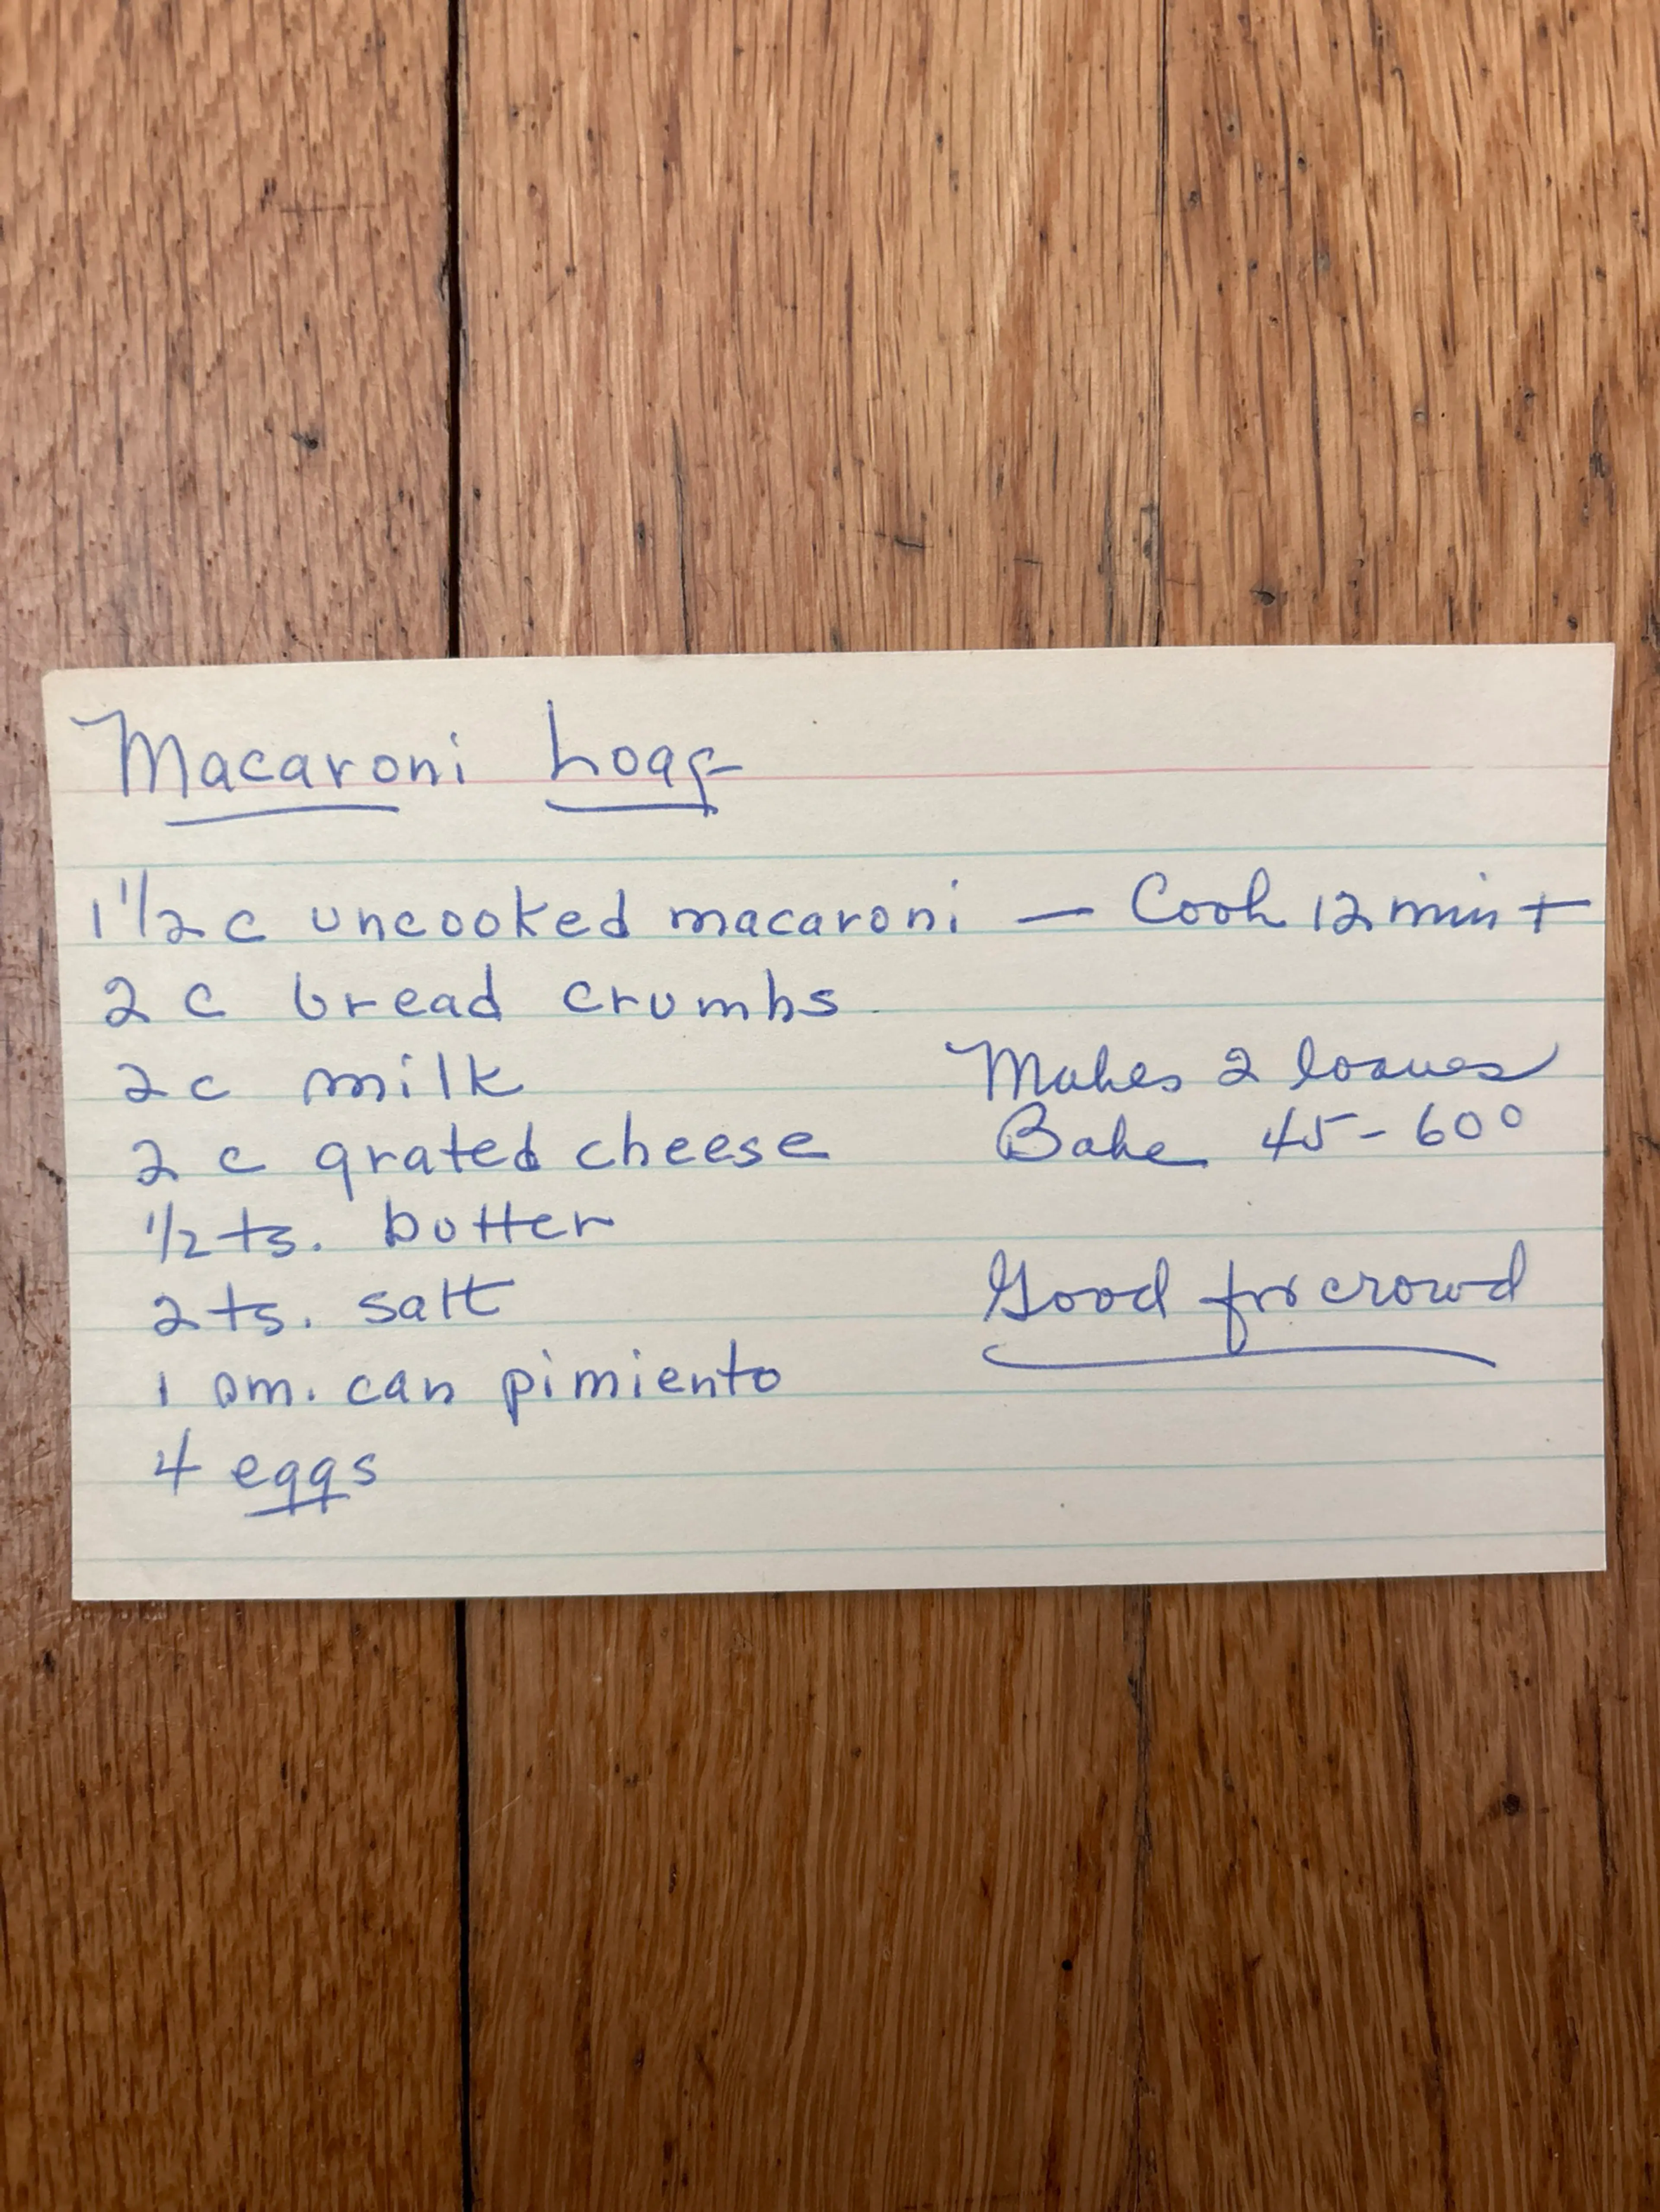 Macaroni Loaf
1 1/2 c uncooked macaroni — Cook 12 min +
2 c bread crumbs
2 c milk
Makes 2 loaves
2 c grated cheese
Bake 45-60°
1/2 ts. butter
2 ts. salt
Good for crowd
1 sm. can pimiento
4 eggs